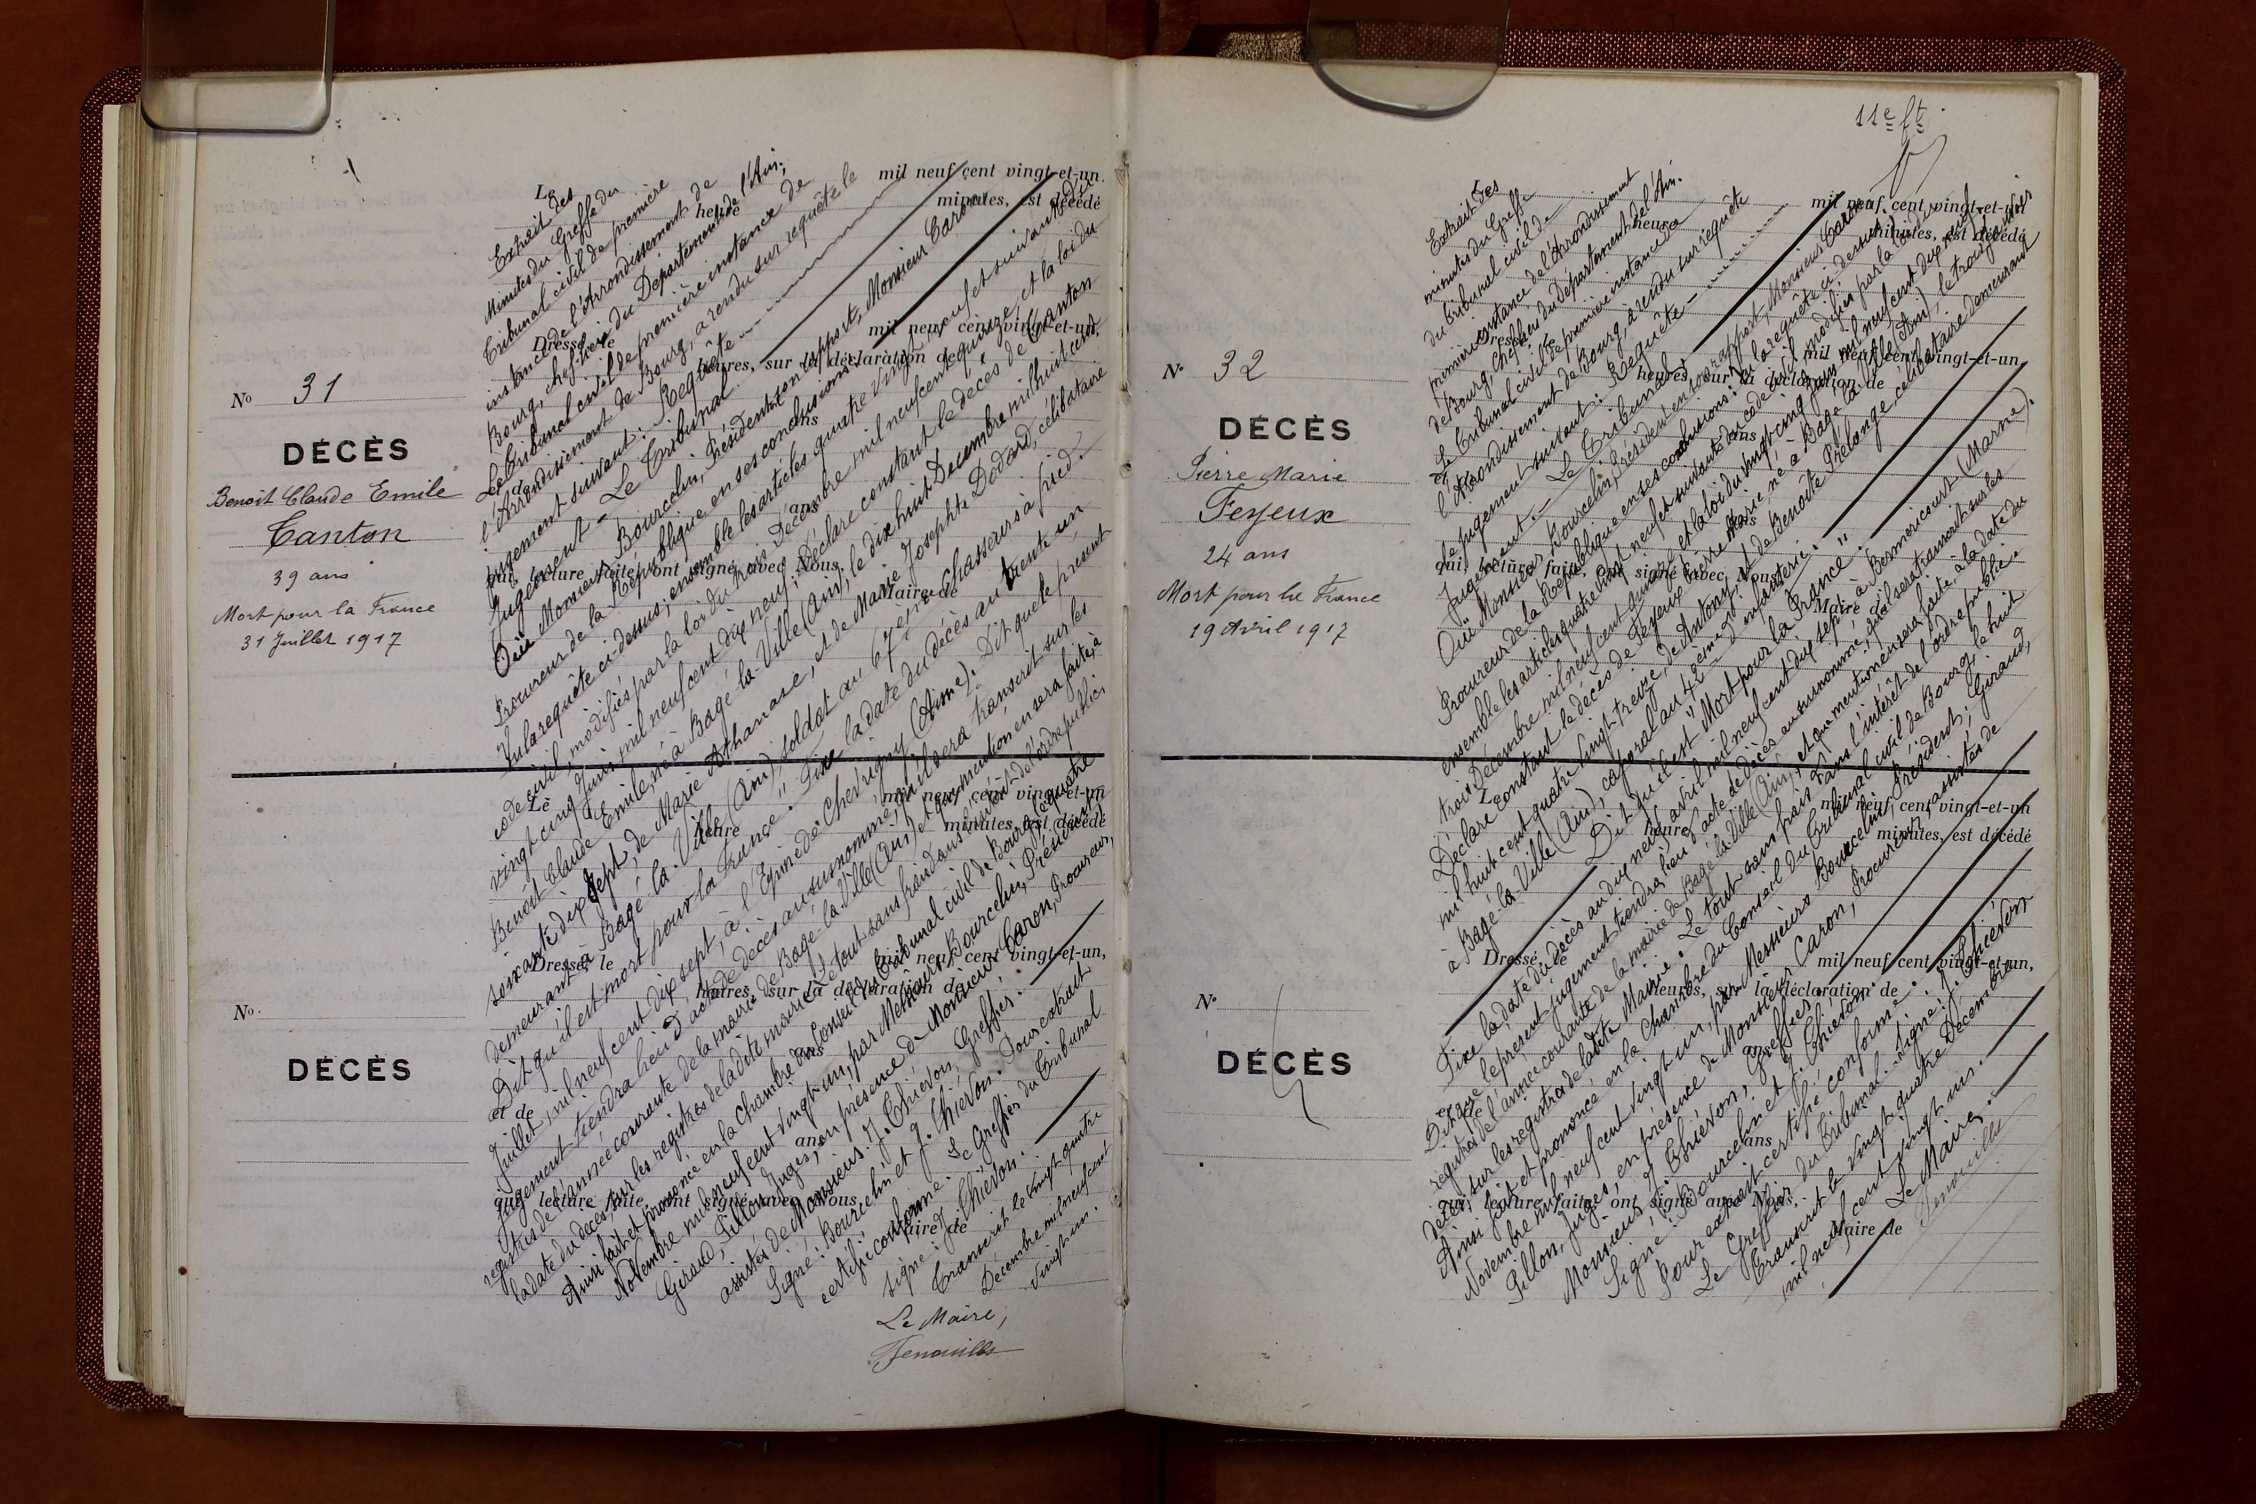 N° 31
DÉCÈS
Benoit Claude Emile
Canton
39 ans
Mort pour la France
31 Juillet 1917
Le
mil neuf cent vingt-et-un.
heure
minutes, est décédé
Dressé le
mil neuf cent vingt-et-un,
heures, sur la déclaration de
ans
et de
ans
qui, lecture faite, ont signé avec Nous,
Maire de
Extrait des
Minutes du Greffe du
Tribunal civil de première
instance de l'Arrondissement de
Bourg, chef-lieu du Département de l'Ain;
Le Tribunal civil de première instance de
l'Arrondissement de Bourg, a rendu sur requête le
jugement suivant: Requête
Jugement - Le Tribunal
Ouï Monsieur Bourcelin, Président en son rapport, Monsieur Caron
Procureur de la République en ses conclusions.
Vu la requête ci-dessus; ensemble les articles quatre vingt neuf et suivants du
code civil, modifiés par la loi du trois Décembre mil neuf cent quinze, et la loi du
vingt cinq Juin mil neuf cent dix neuf; Déclare constant le décès de Canton
Benoît Claude Emile, né à Bagé-la-Ville (Ain), le dix huit Décembre mil huit cent
soixante dix sept, de Marie Athanase, et de Marie Josephte Dodard, célibataire
demeurant à Bagé-la-Ville (Ain), soldat au 67ème Chasseurs à pied.
Dit qu'il est "mort pour la France". Fixe la date du décès au trente un
Juillet mil neuf cent dix sept, à l'Epine de Chevrigny (Aisne). Dit que le présent
jugement tiendra lieu d'acte de décès au susnommé, qu'il sera transcrit sur les
registres de l'année courante de la mairie de Bagé-la-Ville (Ain) et que mention en sera faite, à
la date du décès, sur les registres de la dite mairie. Le tout sans frais dans l'intérêt de l'ordre public.
Ainsi fait et prononcé en la Chambre du Conseil du Tribunal civil de Bourg, le quatre
Novembre mil neuf cent vingt-un, par Messieurs Bourcelin, Président;
Giraud, Pillon, Juges, en présence de Monsieur Caron, Procureur,
assistés de Monsieur J. Chiévon, Greffier.
Signé: Bourcelin et J. Chiévon. Pour extrait
certifié conforme. Le Greffier du Tribunal
signé: J. Chiévon.
Transcrit le vingt quatre
Décembre mil neuf cent
vingt un.
Le Maire,
N°
DÉCÈS
Le
mil neuf cent vingt-et-un
heure
minutes, est décédé
Dressé le
mil neuf cent vingt-et-un,
heures, sur la déclaration de
ans
et de
ans
qui, lecture faite, ont signé avec Nous,
Maire de
11e ft
N° 32
DÉCÈS
Pierre Marie
Feyeux
24 ans
Mort pour la France
19 Avril 1917
Le
mil neuf cent vingt-et-un
heure
minutes, est décédé
Dressé le
mil neuf cent vingt-et-un
heures, sur la déclaration de
ans
et de
ans
qui, lecture faite, ont signé avec Nous,
Maire de
Extrait des
minutes du Greffe
du Tribunal civil de
première instance de l'Arrondissement
de Bourg, chef-lieu du Département de l'Ain.
Le Tribunal civil de première instance de
l'Arrondissement de Bourg, a rendu sur requête
le jugement suivant: Requête
Jugement. - Le Tribunal
Ouï Monsieur Bourcelin, Président en son rapport, Monsieur Caron,
Procureur de la République en ses conclusions; Vu la requête ci-dessus;
ensemble les articles quatre vingt neuf et suivants du code civil, modifiés par la loi du
trois Décembre mil neuf cent quinze et la loi du vingt cinq Juin mil neuf cent dix neuf;
Déclare constant le décès de Feyeux Pierre Marie né à Bagé-la-Ville (Ain), le
mil huit cent quatre vingt treize, de Antony et de Benoîte Prelonge, célibataire demeurant
à Bagé-la-Ville (Ain), caporal au 42ème Rgt d'infanterie.
Dit qu'il est "Mort pour la France".
Fixe la date du décès au dix neuf avril mil neuf cent dix sept, à Bermericourt (Marne).
Dit que le présent jugement tiendra lieu d'acte de décès au susnommé, qu'il sera transcrit sur les
registres de l'année courante de la mairie de Bagé-la-Ville (Ain) et que mention en sera faite, à la date du
décès, sur les registres de la dite Mairie. Le tout sans frais dans l'intérêt de l'ordre public
Ainsi fait et prononcé en la Chambre du Conseil du Tribunal civil de Bourg, le huit
Novembre mil neuf cent vingt un, par Messieurs Bourcelin, Président; Giraud,
Pillon, Juges, en présence de Monsieur Caron, Procureur, assistés de
Monsieur J. Chiévon, Greffier.
Signé: Bourcelin et J. Chiévon.
Pour extrait certifié conforme.
Le Greffier du Tribunal. Signé: J. Chiévon
Transcrit le vingt quatre Décembre
mil neuf cent vingt un.
Le Maire,
N°
DÉCÈS
Le
mil neuf cent vingt-et-un
heure
minutes, est décédé
Dressé, le
mil neuf cent vingt-et-un,
heures, sur la déclaration de
ans
et de
ans
qui, lecture faite, ont signé avec Nous,
Maire de